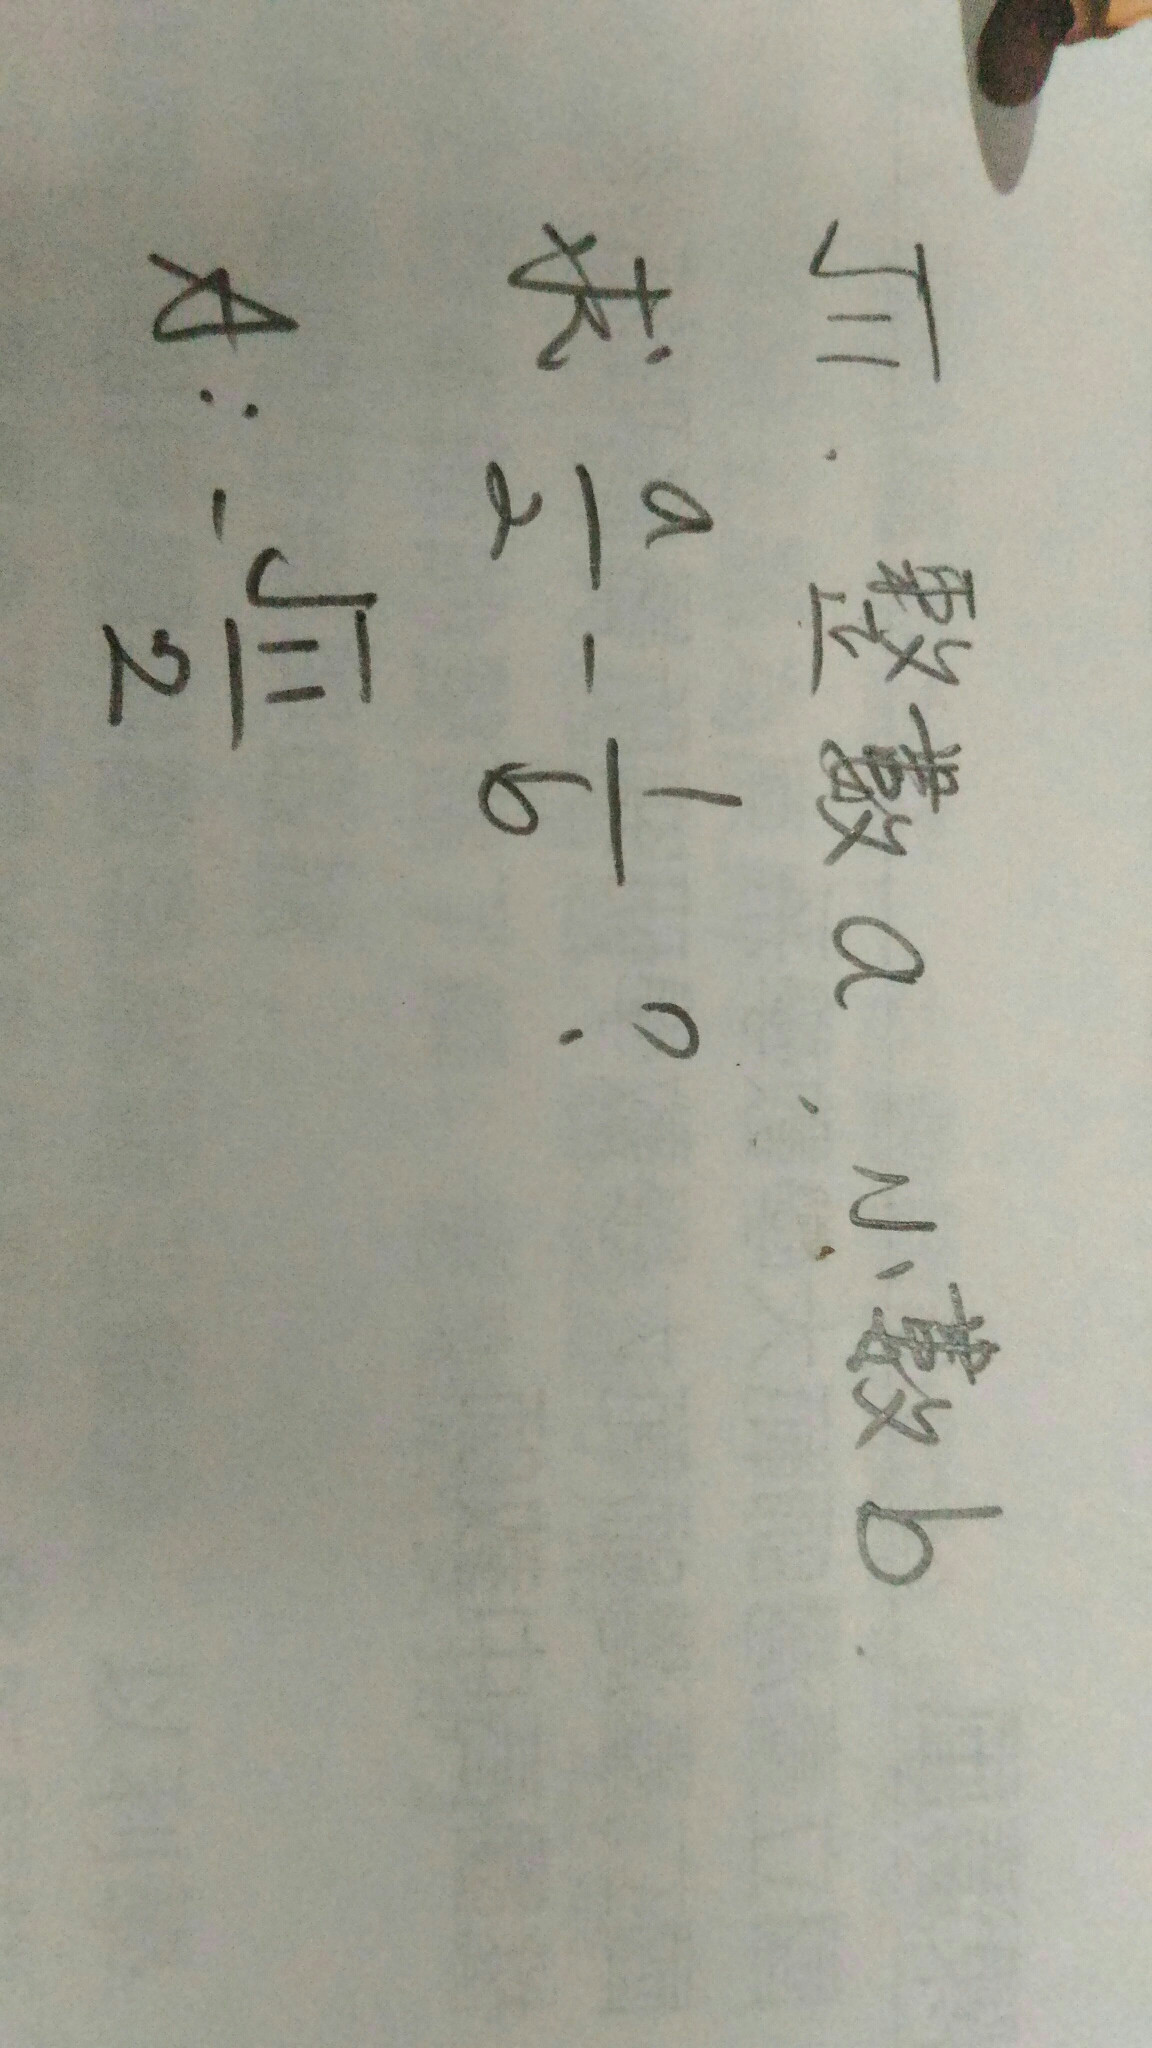 √11. 整數a. 小數b.
求: a/2 - 1/b ?
A: -√11/2